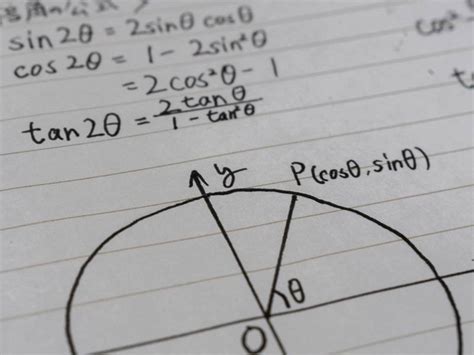 公式
sin2θ = 2sinθ cosθ
cos2θ = 1 - 2sin²θ
= 2cos²θ - 1
tan2θ = 2tanθ / 1 - tan²θ
cos²
y
P(cosθ, sinθ)
θ
O